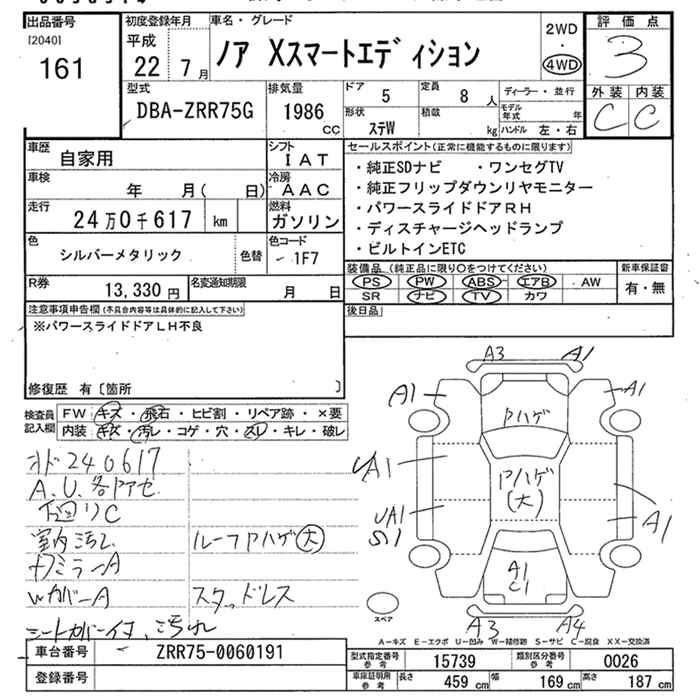 出品番号
[2040]
161
初度登録年月
平成
22年7月
車名・グレード
ノア Xスマートエディション
2WD
・
4WD
評価点
3
外装 内装
C C
型式
DBA-ZRR75G
排気量
1986
CC
ドア
5
定員
8人
形状
ステW
積載
kg
ディーラー・並行
モデル年式 年
ハンドル 左・右
車歴
自家用
シフト
IAT
車検
年 月( 日)
冷房
AAC
走行
24万0千617 km
燃料
ガソリン
色
シルバーメタリック
色替
色コード
1F7
R券
13,330円
名変通知期限
月 日
セールスポイント(正常に機能するものに限ります)
・純正SDナビ ・ワンセグTV
・純正フリップダウンリヤモニター
・パワースライドドアRH
・ディスチャージヘッドランプ
・ビルトインETC
装備品(純正品に限り〇をつけてください)
PS PW ABS エアB AW
SR ナビ TV カワ
新車保証書
有・無
後日品
注意事項申告欄(不具合内容等は具体的に記入して下さい)
※パワースライドドアLH不良
修復歴 有〔箇所 〕
検査員記入欄
FW キズ・飛石・ヒビ割・リペア跡・×要
内装 キズ・汚レ・コゲ・穴・スレ・キレ・破レ
オド240617
A.U.各アセ
下廻りC
室内汚レ
ルーフPハゲ(大)
ナミラーA
WカバーA
スタッドレス
シートカバー付、汚れ
A3 A1
A1 A1
Pハゲ
UA1
Pハゲ
(大)
UA1
S1
A1
A1
C1
スペア
A3 A4
A-キズ E-エクボ U-凹み W-補修跡 S-サビ C-腐食 XX-交換済
車台番号
ZRR75-0060191
登録番号
型式指定番号 参考
15739
類別区分番号 参考
0026
車庫証明用 参考
長さ 459cm
幅 169cm
高さ 187cm